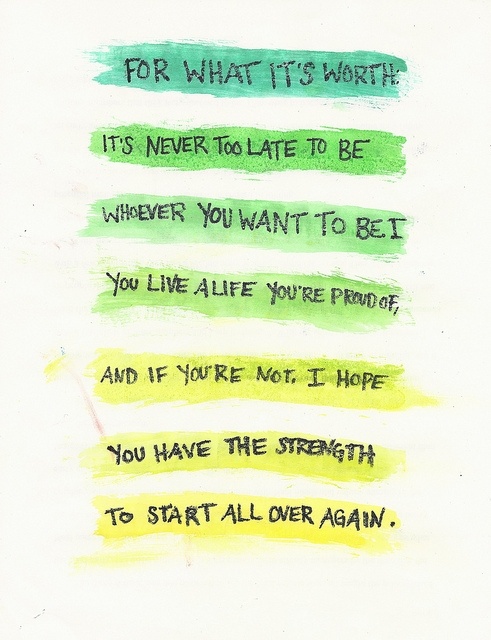 FOR WHAT IT'S WORTH:
IT'S NEVER TOO LATE TO BE
WHOEVER YOU WANT TO BE. I
YOU LIVE A LIFE YOU'RE PROUD OF,
AND IF YOU'RE NOT, I HOPE
YOU HAVE THE STRENGTH
TO START ALL OVER AGAIN.